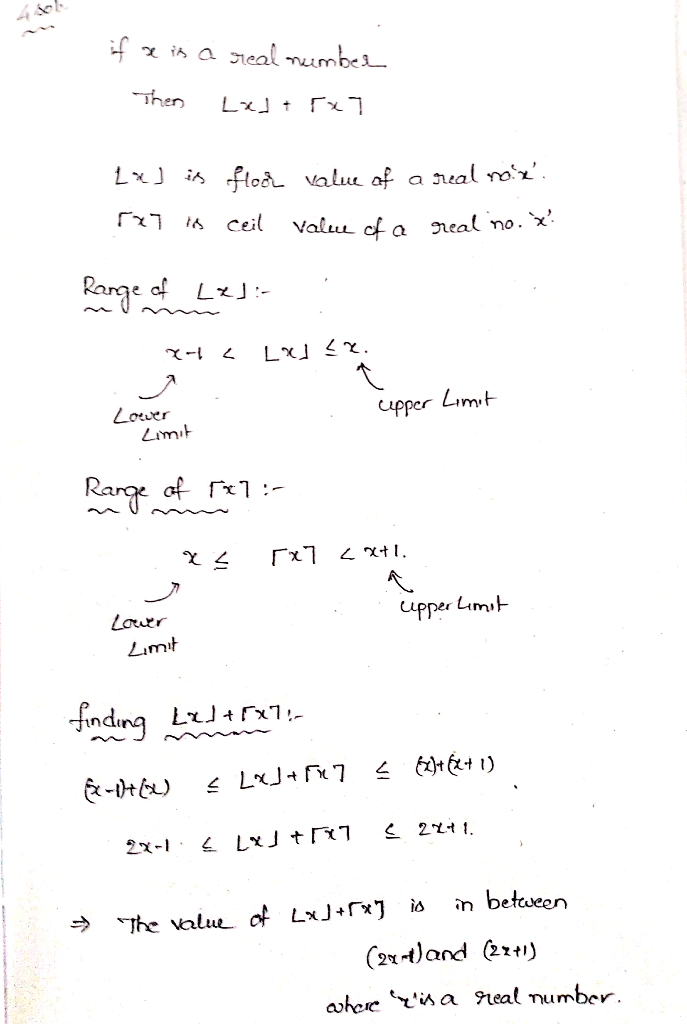 4 sol.
if x is a real number
Then ⌊x⌋ + ⌈x⌉
⌊x⌋ is floor value of a real no.'x'.
⌈x⌉ is ceil value of a real no. 'x'.
Range of ⌊x⌋:-
x-1 < ⌊x⌋ ≤ x.
Lower Limit
upper Limit
Range of ⌈x⌉:-
x ≤ ⌈x⌉ < x+1.
Lower Limit
upper Limit
finding ⌊x⌋+⌈x⌉:-
(x-1)+(x) ≤ ⌊x⌋+⌈x⌉ ≤ (x)+(x+1)
2x-1 ≤ ⌊x⌋+⌈x⌉ ≤ 2x+1.
⇒ The value of ⌊x⌋+⌈x⌉ is in between
(2x-1) and (2x+1)
where 'x' is a real number.